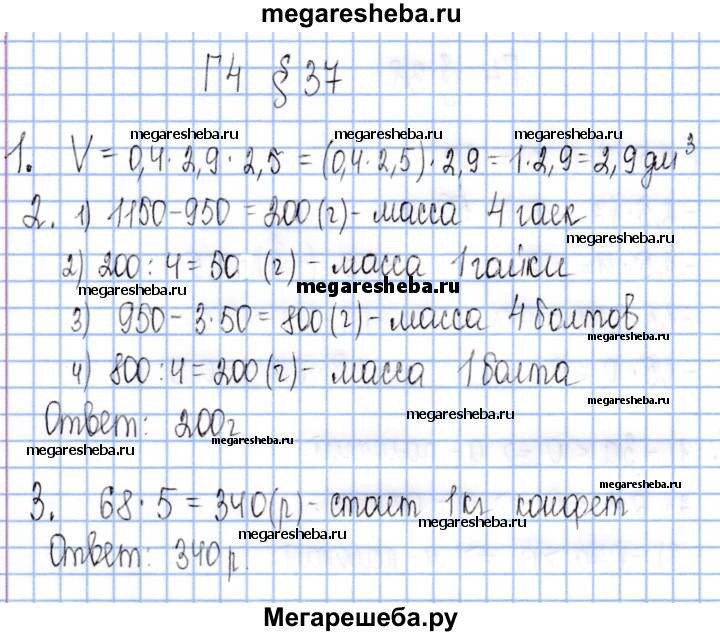 megaresheba.ru
Г4 § 37
megaresheba.ru megaresheba.ru megaresheba.ru
1. V = 0,4 · 2,9 · 2,5 = (0,4 · 2,5) · 2,9 = 1 · 2,9 = 2,9 дм³
2. 1) 1150 - 950 = 200 (г) - масса 4 гаек
megaresheba.ru
2) 200 : 4 = 50 (г) - масса 1 гайки
megaresheba.ru megaresheba.ru
3) 950 - 3 · 50 = 800 (г) - масса 4 болтов
megaresheba.ru
4) 800 : 4 = 200 (г) - масса 1 болта
megaresheba.ru
Ответ: 200 г
megaresheba.ru
megaresheba.ru megaresheba.ru
megaresheba.ru
3. 68 · 5 = 340 (р) - стоит 1 кг конфет
megaresheba.ru megaresheba.ru
Ответ: 340 р.
megaresheba.ru
Мегарешеба.ру